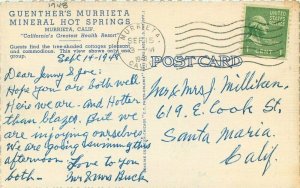 1948
GUENTHER'S MURRIETA
MINERAL HOT SPRINGS
MURRIETA, CALIF.
"California's Greatest Health Resort"
Guests find the tree-shaded cottages pleasant
and commodious. This view shows only one
group.
Sept 14-1948
Dear Jenny & Joe:
Hope you are both well.
Here we are - and Hotter
than blazes. But we
are enjoying ourselves
we are going swimming this
afternoon. Love to you
both - Mr & Mrs Buck
MURRIETA
SEP 15
CALIF.
POST CARD
Mr & Mrs J. Milliken,
619 E. Cook St.
Santa Maria.
Calif.